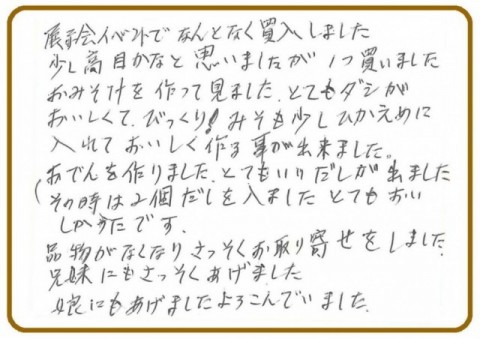 展示会イベントでなんとなく買入しました
少し高目かなと思いましたが1つ買いました
おみそ汁を作って見ました、とてもダシが
おいしくて、びっくり!みそも少しひかえめに
入れておいしく作る事が出来ました。
おでんを作りました、とてもいいだしが出ました
(その時は2個だしを入ました とてもおい
しかったです.
品物がなくなりさっそくお取り寄せをしました.
兄妹にもさっそくあげました
娘にもあげましたよろこんでいました.